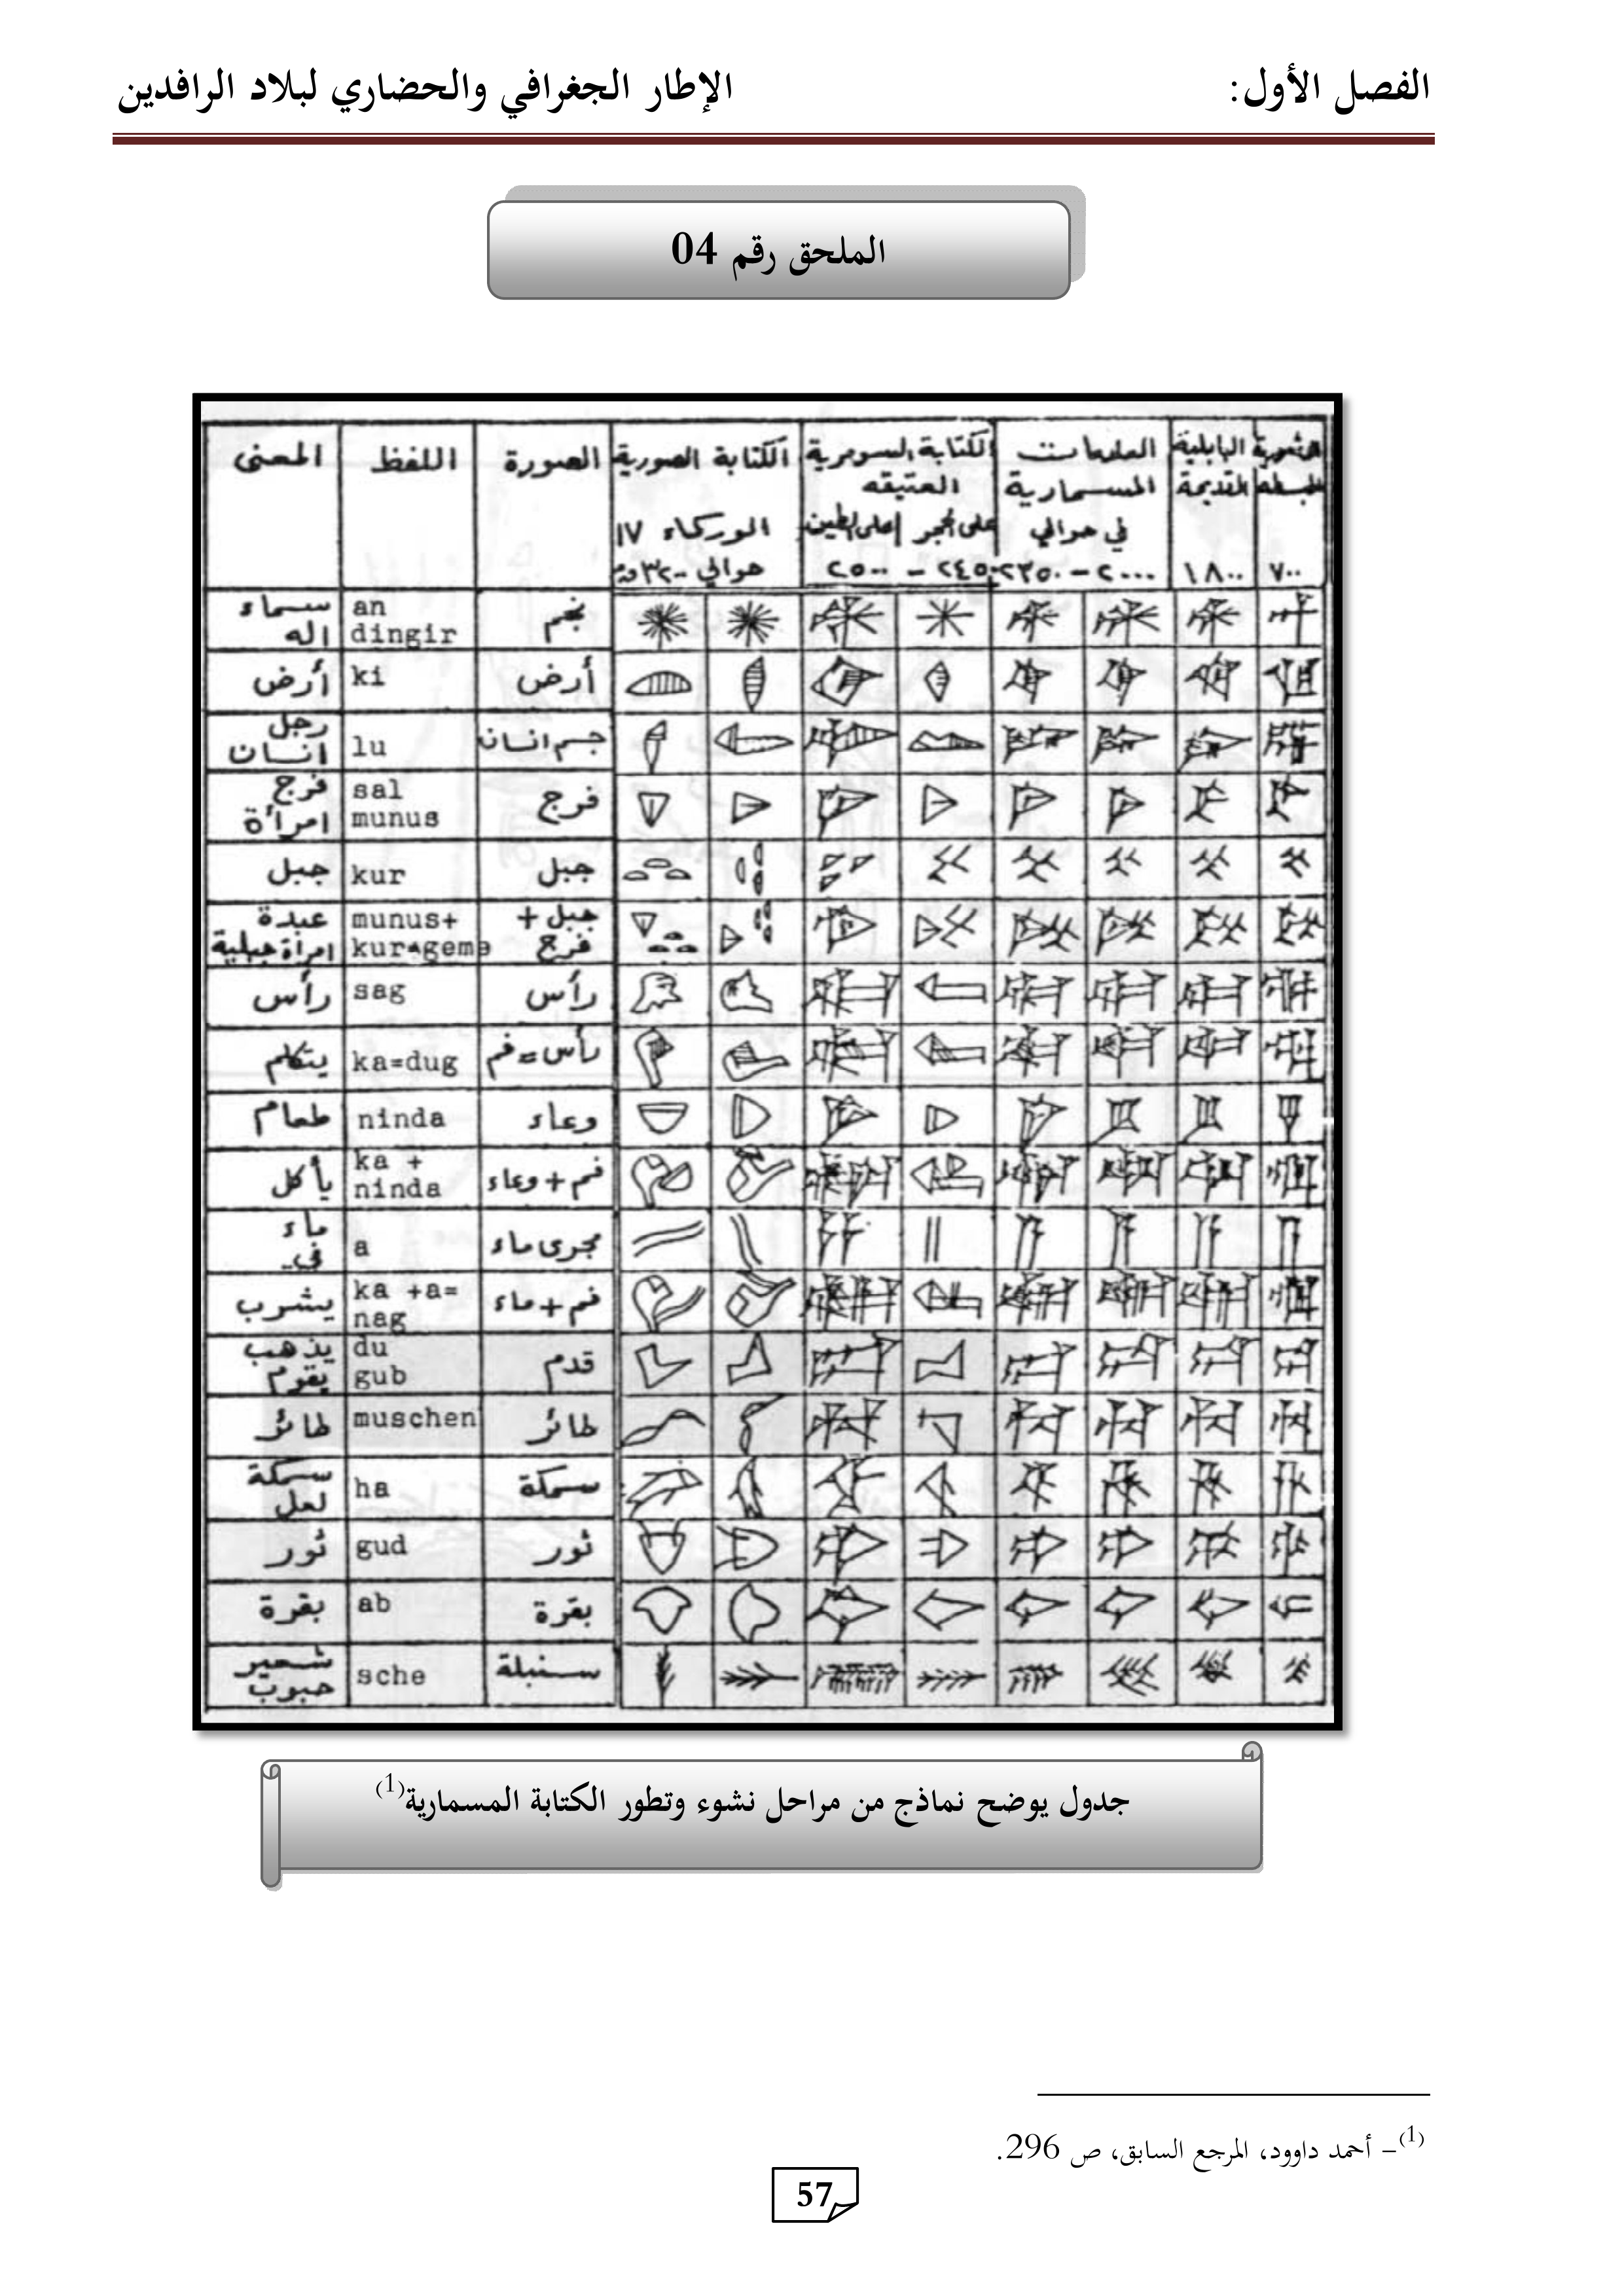 الفصل الأول: الإطار الجغرافي والحضاري لبلاد الرافدين
الملحق رقم 04
المعنى اللفظ الصورة الكتابة الصورية الكتابة السومرية العلامات البابلية
العتيقة المسمارية القديمة
الوركاء على الطين على الحجر في حوالي
حوالي ٢٥٠٠ – ٢٤٥٠ ٢٣٥٠ – ٢٠٠٠ ١٨٠٠ ٧٠٠
سماء اله an dingir نجم
أرض ki أرض
رجل انسان lu جسم انسان
فرج امرأة sal munus فرج
جبل kur جبل
عبدة امرأة جبلية munus+ جبل + فرج
رأس sag رأس
يتكلم ka=dug رأس=فم
طعام ninda وعاء
يأكل ka + ninda فم+وعاء
ماء في a مجرى ماء
يشرب ka +a= nag فم+ماء
يذهب يقوم du gub قدم
طائر muschen طائر
سمكة لعل ha سمكة
ثور gud ثور
بقرة ab بقرة
شعير حبوب sche سنبلة
جدول يوضح نماذج من مراحل نشوء وتطور الكتابة المسمارية(1)
(1)– أحمد داوود، المرجع السابق، ص 296.
57